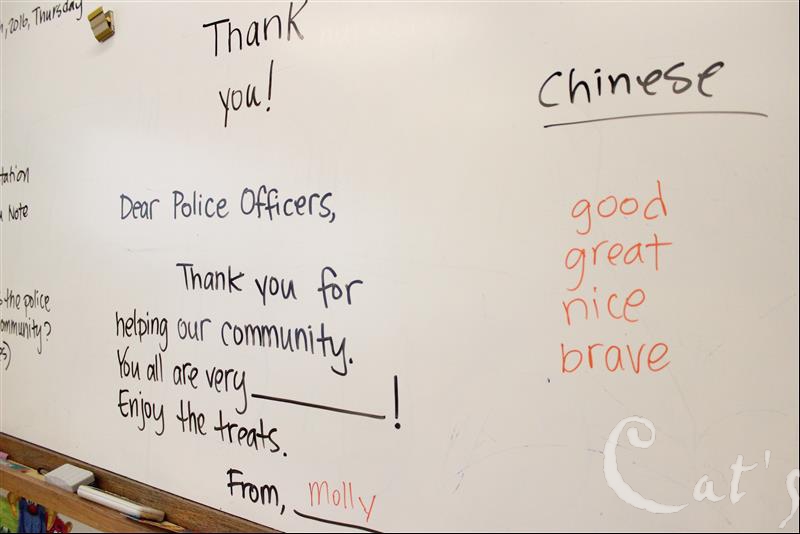 , 2016, Thursday
Thank
you!
Chinese
tation
Note
Dear Police Officers,
Thank you for
helping our community.
You all are very ________!
Enjoy the treats.
From, Molly
the police
ommunity?
good
great
nice
brave
Cat's